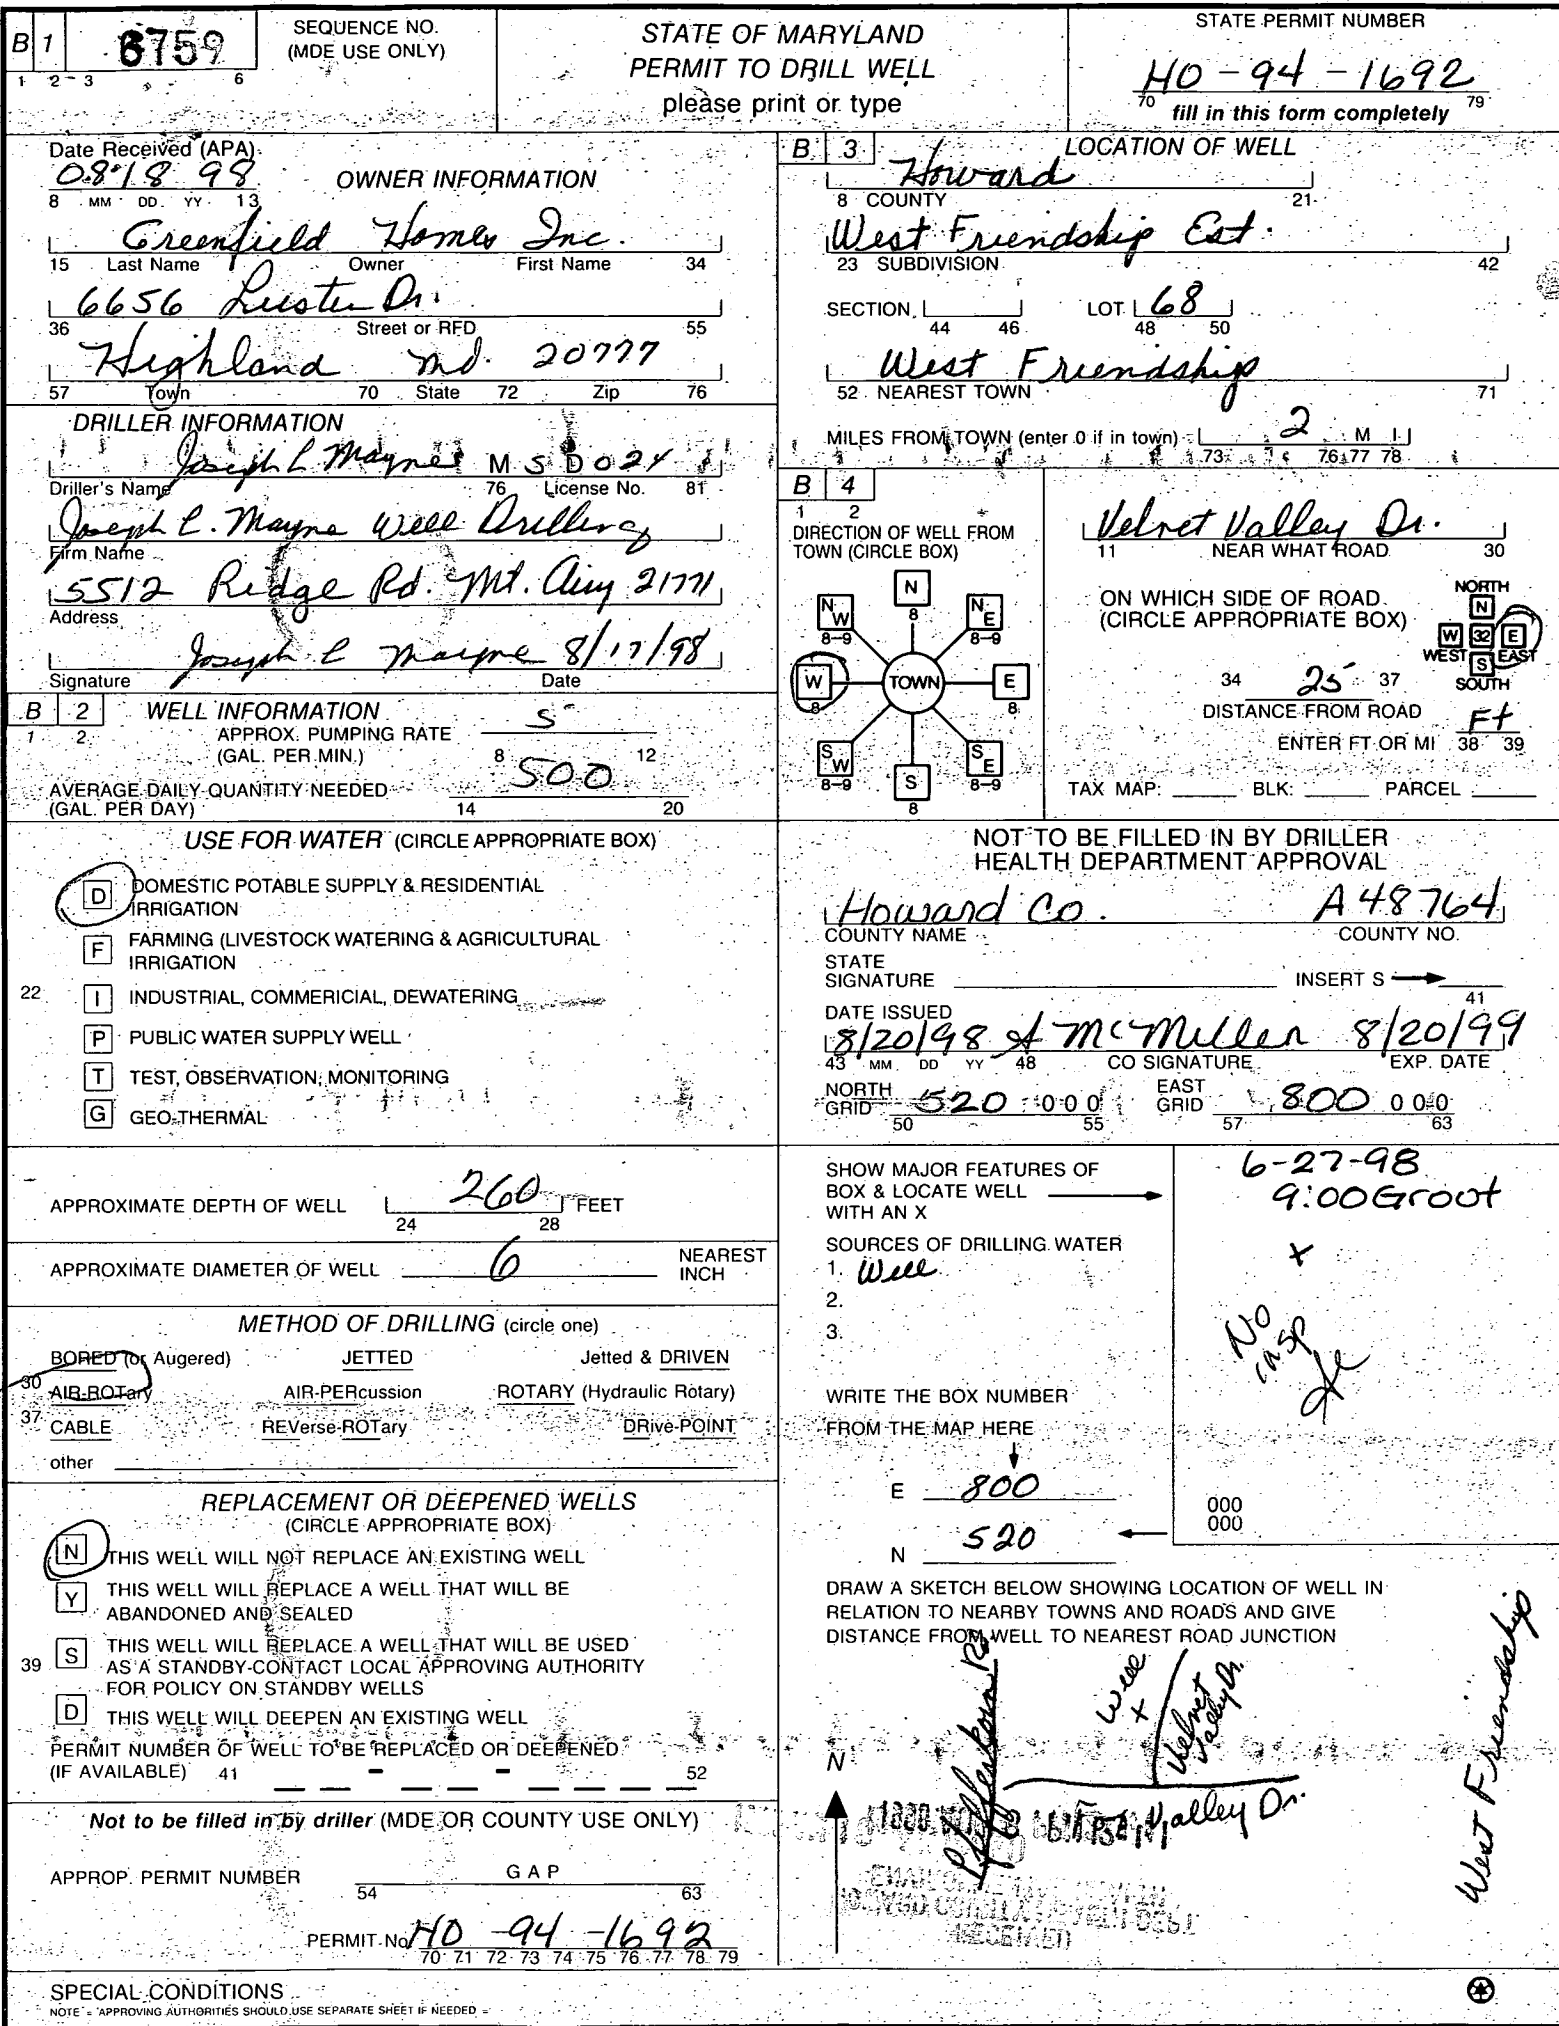 B 1 6759 SEQUENCE NO.
(MDE USE ONLY)
1 2 - 3 6
STATE OF MARYLAND
PERMIT TO DRILL WELL
please print or type
STATE PERMIT NUMBER
HO - 94 - 1692
70 79
fill in this form completely
Date Received (APA)
08 18 98
8 MM DD YY 13
OWNER INFORMATION
Greenfield Homes Inc.
15 Last Name Owner First Name 34
6656 Luster Dr.
36 Street or RFD 55
Highland Md. 20777
57 Town 70 State 72 Zip 76
DRILLER INFORMATION
Joseph L Mayne M S D 024
Driller's Name 76 License No. 81
Joseph L. Mayne Well Drilling
Firm Name
5512 Ridge Rd. Mt. Airy 21771
Address
Joseph L Mayne 8/17/98
Signature Date
B 2 WELL INFORMATION
1 2
APPROX. PUMPING RATE 5
(GAL. PER MIN.) 8 12
AVERAGE DAILY QUANTITY NEEDED 500
(GAL. PER DAY) 14 20
USE FOR WATER (CIRCLE APPROPRIATE BOX)
D DOMESTIC POTABLE SUPPLY & RESIDENTIAL
IRRIGATION
F FARMING (LIVESTOCK WATERING & AGRICULTURAL
IRRIGATION
22 I INDUSTRIAL, COMMERICIAL, DEWATERING
P PUBLIC WATER SUPPLY WELL
T TEST, OBSERVATION, MONITORING
G GEO-THERMAL
APPROXIMATE DEPTH OF WELL 260 FEET
24 28
APPROXIMATE DIAMETER OF WELL 6 NEAREST
INCH
METHOD OF DRILLING (circle one)
BORED (or Augered) JETTED Jetted & DRIVEN
30 AIR-ROTary AIR-PERcussion ROTARY (Hydraulic Rotary)
37 CABLE REVerse-ROTary DRive-POINT
other
REPLACEMENT OR DEEPENED WELLS
(CIRCLE APPROPRIATE BOX)
N THIS WELL WILL NOT REPLACE AN EXISTING WELL
Y THIS WELL WILL REPLACE A WELL THAT WILL BE
ABANDONED AND SEALED
39 S THIS WELL WILL REPLACE A WELL THAT WILL BE USED
AS A STANDBY-CONTACT LOCAL APPROVING AUTHORITY
FOR POLICY ON STANDBY WELLS
D THIS WELL WILL DEEPEN AN EXISTING WELL
PERMIT NUMBER OF WELL TO BE REPLACED OR DEEPENED
(IF AVAILABLE) 41 - - 52
Not to be filled in by driller (MDE OR COUNTY USE ONLY)
APPROP. PERMIT NUMBER G A P
54 63
PERMIT No HO - 94 - 1692
70 71 72 73 74 75 76 77 78 79
SPECIAL CONDITIONS
NOTE = APPROVING AUTHORITIES SHOULD USE SEPARATE SHEET IF NEEDED =
B 3 LOCATION OF WELL
Howard
8 COUNTY 21
West Friendship Est.
23 SUBDIVISION 42
SECTION LOT 68
44 46 48 50
West Friendship
52 NEAREST TOWN 71
MILES FROM TOWN (enter 0 if in town) 2 M I
73 76 77 78
B 4
1 2
DIRECTION OF WELL FROM
TOWN (CIRCLE BOX)
N
8
NW NE
8-9 8-9
W TOWN E
8 8
SW SE
8-9 8-9
S
8
Velvet Valley Dr.
11 NEAR WHAT ROAD 30
ON WHICH SIDE OF ROAD
(CIRCLE APPROPRIATE BOX)
NORTH
N
W 32 E
WEST S EAST
SOUTH
34 25 37
DISTANCE FROM ROAD Ft
ENTER FT OR MI 38 39
TAX MAP: BLK: PARCEL
NOT TO BE FILLED IN BY DRILLER
HEALTH DEPARTMENT APPROVAL
Howard Co. A 48764
COUNTY NAME COUNTY NO.
STATE
SIGNATURE INSERT S
41
DATE ISSUED
8/20/98 A McMillen 8/20/99
43 MM DD YY 48 CO SIGNATURE EXP. DATE
NORTH
GRID 520 000 EAST
GRID 800 000
50 55 57 63
SHOW MAJOR FEATURES OF
BOX & LOCATE WELL
WITH AN X
6-27-98
9:00 Groot
x
No
insp
SOURCES OF DRILLING WATER
1. Well
2.
3.
WRITE THE BOX NUMBER
FROM THE MAP HERE
E 800
N 520
000
000
DRAW A SKETCH BELOW SHOWING LOCATION OF WELL IN
RELATION TO NEARBY TOWNS AND ROADS AND GIVE
DISTANCE FROM WELL TO NEAREST ROAD JUNCTION
N
Pfefferkorn Rd
Well
+
Velvet
Valley Dr.
Valley Dr.
West Friendship